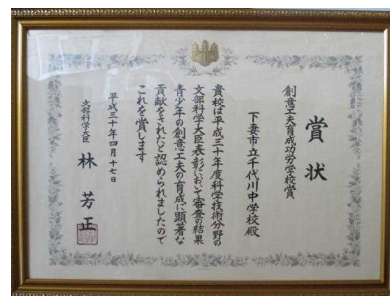 賞状
創意工夫育成功労学校賞
下妻市立千代川中学校殿
貴校は平成三十年度科学技術分野の
文部科学大臣表彰において審査の結果
青少年の創意工夫の育成に顕著な
貢献をされたと認められましたので
これを賞します
平成三十年四月十七日
文部科学大臣 林芳正